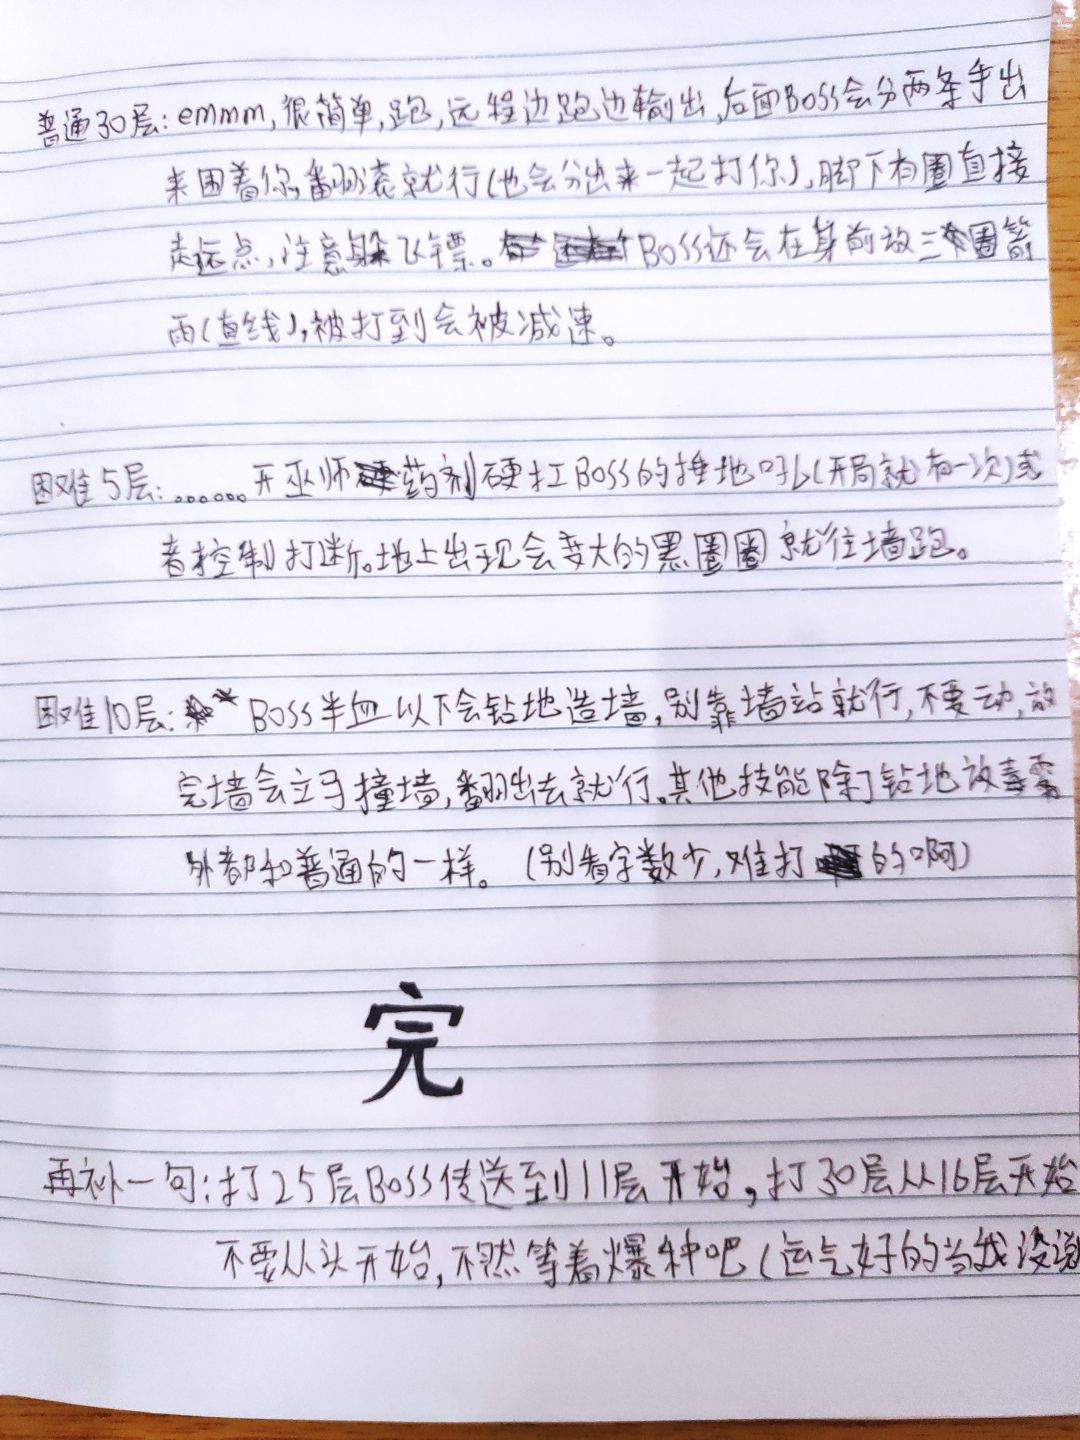 普通30层:emmm,很简单,跑,远程边跑边输出,后面Boss会分两条手出
来困着你,翻滚就行(也会分出来一起打你),脚下有圈直接
走远点,注意躲飞镖。Boss还会在身前放三圈箭
雨(直线),被打到会被减速。
困难5层:。。。。。。开巫师药剂硬扛Boss的捶地吼(开局就有一次)或
者控制打断。地上出现会变大的黑圈圈就往墙跑。
困难10层:Boss半血以下会钻地造墙,别靠墙站就行,不要动,放
完墙会立马撞墙,翻出去就行。其他技能除了钻地放毒雾
外都和普通的一样。(别看字数少,难打的啊)
完
再补一句:打25层Boss传送到11层开始,打30层从16层开始
不要从头开始,不然等着爆种吧(运气好的当我没说